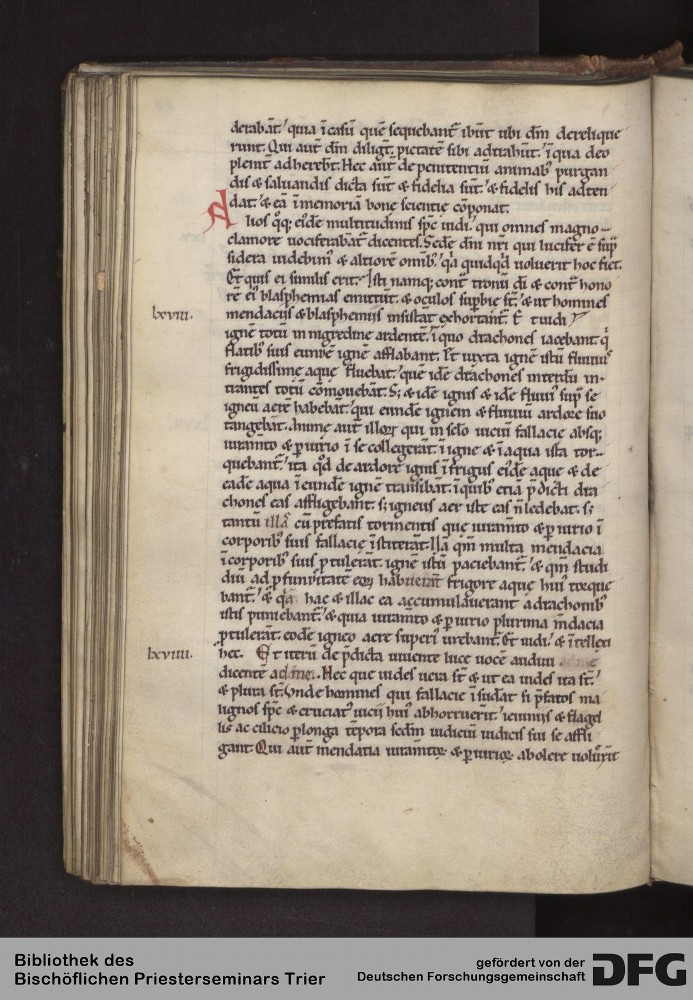 derabāt. quia ī casū quē sequebant᷒ ibūt ubi dm̄ derelique
runt. Qui aut̄ dm̄ diligt̄. pietatē sibi adtrahūt. īqua deo
pleniт̄ adhereb̄t. Hec aut̄ de penitentiū animab᷒ purgan
dis & saluandis dicta sūt & fidelia sūt. & fidelis his adten
dat. & eā ī memoriā bone scientie cōponat.
Alios q̊q; eiḋe multitudinis spc̄ uidi. qui omnes magno
clamore uociferabāt᷒ dicentes. Sede dm̄ nr̄i qui lucifer ē sup̄
sidera uidebim᷒ & altiorē omīb᷒. q̄a quidqd uoluerit hoc fiet.
Et quis ei similis erit. Isti namq; cont᷒ tronū di & cont᷒ hono
rē ei᷒ blasphemias emittūt. & oculos supbie st̄. & ut homines
lxviii.
mendaciis & blasphemiis insistāt exhortant᷒. Et uidi
ignē totū in nigredine ardentē. ī quo drachones iacebant. q̄
flatib᷒ suis eundē ignē afflabant. Et iuxta ignē istū fluuius
frigidissime aque fluebat. quē idē drachones interdū in
trantes totū cōmouebāt. S; & idē ignis & idē fluui᷒ sup̄ se
igneū aerē habebāt. qui eundē ignem & fluuiū ardore suo
tangebāt. Anime aut̄ illoꝝ qui in sc̄lo uiciū fallacie absq;
iuramto & piurio ī se collegerāt. ī igne & ī aqua ista tor
quebant᷒. ita qd de ardore ignis ī frigus eiḋe aque & de
eadē aqua ī eundē ignē transibāt. ī quib᷒ etiā p̄dicti dra
chones eas affligebant. s; igneus aer iste eas n̄ ledebat. s;
tantū illā cū prefatis tormentis que iuramto & piurio ī
corporib᷒ suis fallacie īstiterāt. Nā qm̄ multa mendacia
ī corporib᷒ suis ptulerāt. ignē istū paciebant᷒. & qm̄ studi
diū ad pfunditatē eoꝝ habuerāt frigore aque hui᷒ torque
bant᷒. & q̄a hac & illac ea accumulauerant a drachonib᷒
istis puniebant᷒. & quia iuramto & piurio plurima mdacia
ptulerāt. eodē igneo aere superi᷒ urebant᷒. Et uidi & intellexi
lxviiii.
hec. Et iterū de p̄dicta uiuente luce uocē audiui
dicentē ad me. Hec que uides uera st̄ & ut ea uides ita st̄.
& plura st̄. Unde homines qui fallacie īsudāt si p̄fatos ma
lignos spc̄ & cruciat᷒ uicii hui᷒ abhorruerīt. ieiuniis & flagel
lis ac cilicio plonga tēpora sedm̄ iudiciū iudicis sui se affli
gant. Qui aut̄ mendatia iuramtoꝝ & piurioꝝ abolere uoluerīt
Bibliothek des
Bischöflichen Priesterseminars Trier
gefördert von der
Deutschen Forschungsgemeinschaft
DFG